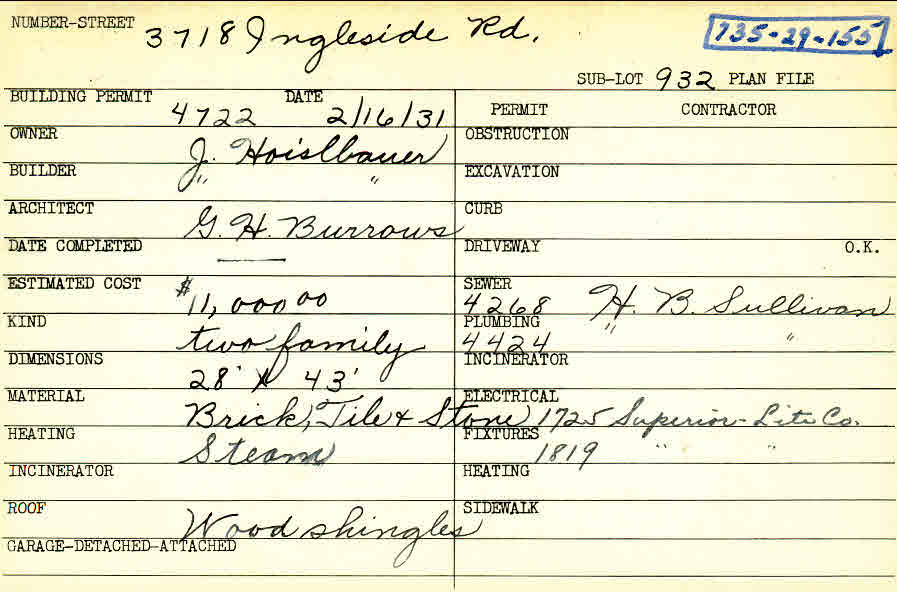 NUMBER-STREET 3718 Ingleside Rd.
735-29-155
SUB-LOT 932 PLAN FILE
BUILDING PERMIT 4722 DATE 2/16/31
OWNER J. Hoislbauer
BUILDER " "
ARCHITECT G. H. Burrows
DATE COMPLETED —
ESTIMATED COST $11,000 00
KIND two family
DIMENSIONS 28' x 43'
MATERIAL Brick, Tile & Stone
HEATING Steam
INCINERATOR
ROOF Wood shingles
GARAGE-DETACHED-ATTACHED
PERMIT CONTRACTOR
OBSTRUCTION
EXCAVATION
CURB
DRIVEWAY O.K.
SEWER 4268 H. B. Sullivan
PLUMBING 4424 " "
INCINERATOR
ELECTRICAL 1725 Superior-Lite Co.
FIXTURES 1819 " "
HEATING
SIDEWALK